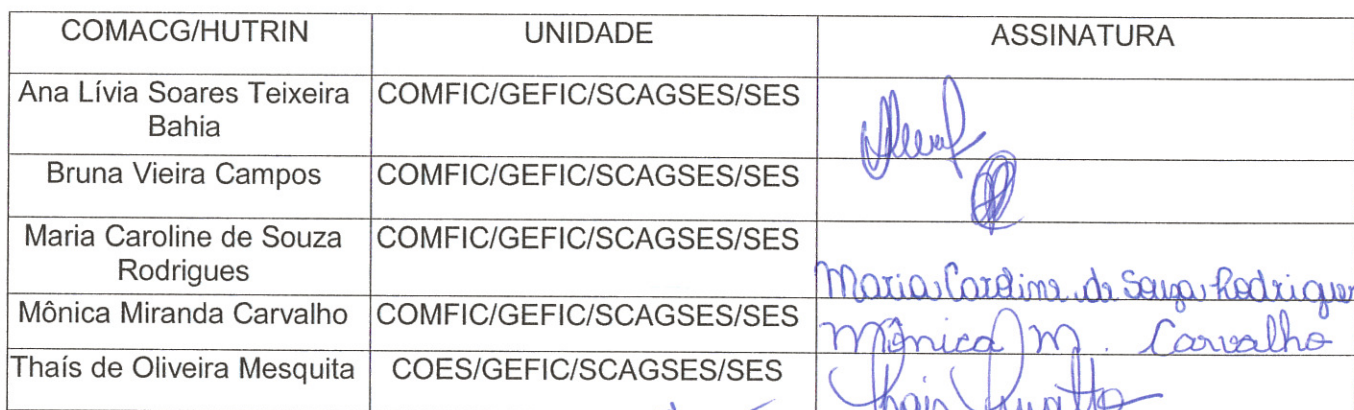 COMACG/HUTRIN UNIDADE ASSINATURA
Ana Lívia Soares Teixeira COMFIC/GEFIC/SCAGSES/SES
Bahia
Bruna Vieira Campos COMFIC/GEFIC/SCAGSES/SES
Maria Caroline de Souza COMFIC/GEFIC/SCAGSES/SES
Rodrigues Maria Caroline de Souza Rodrigues
Mônica Miranda Carvalho COMFIC/GEFIC/SCAGSES/SES Mônica M. Carvalho
Thaís de Oliveira Mesquita COES/GEFIC/SCAGSES/SES Thais